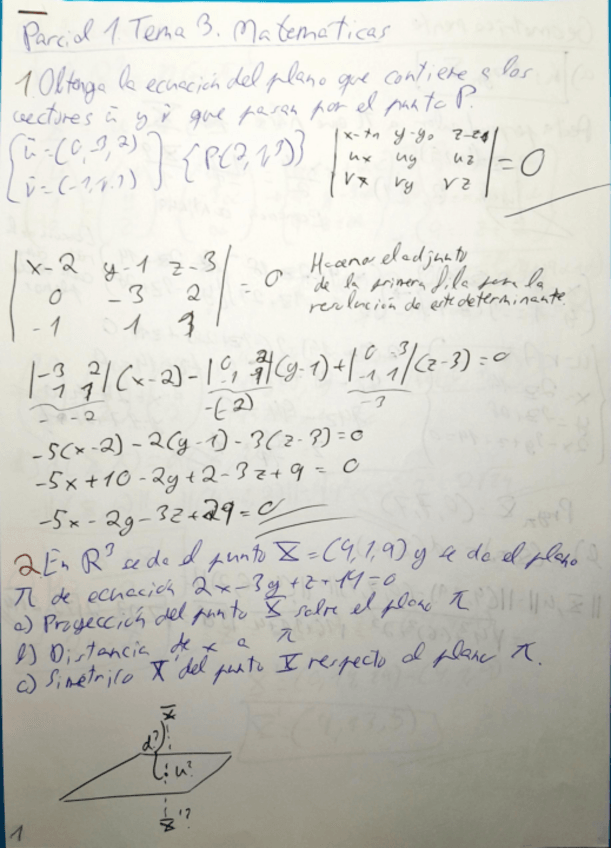 Parcial 1. Tema 3. Matematicas
1. Obtenga la ecuación del plano que contiene a los
vectores ū y v̄ que pasan por el punto P.
{ū=(0,-3,2)
v̄=(-1,1,1)} {P(2,1,3)} |x-x₀ y-y₀ z-z₀
ux uy uz
vx vy vz| =0
|x-2 y-1 z-3
0 -3 2
-1 1 1| = 0
Hacemos el adjunto
de la primera fila para la
resolución de este determinante.
|-3 2
1 1|(x-2) - |0 2
-1 1|(y-1) + |0 -3
-1 1|(z-3) = 0
-3-2 -(2) -3
-5(x-2)-2(y-1)-3(z-3)=0
-5x+10-2y+2-3z+9 = 0
-5x-2y-3z+21=0
2. En R³ se da el punto X=(4,1,9) y se da el plano
π de ecuación 2x-3y+z+14=0
a) Proyección del punto X sobre el plano π
b) Distancia de x a π
c) Simétrico X' del punto X respecto al plano π.
X
d?
u?
X'?
1